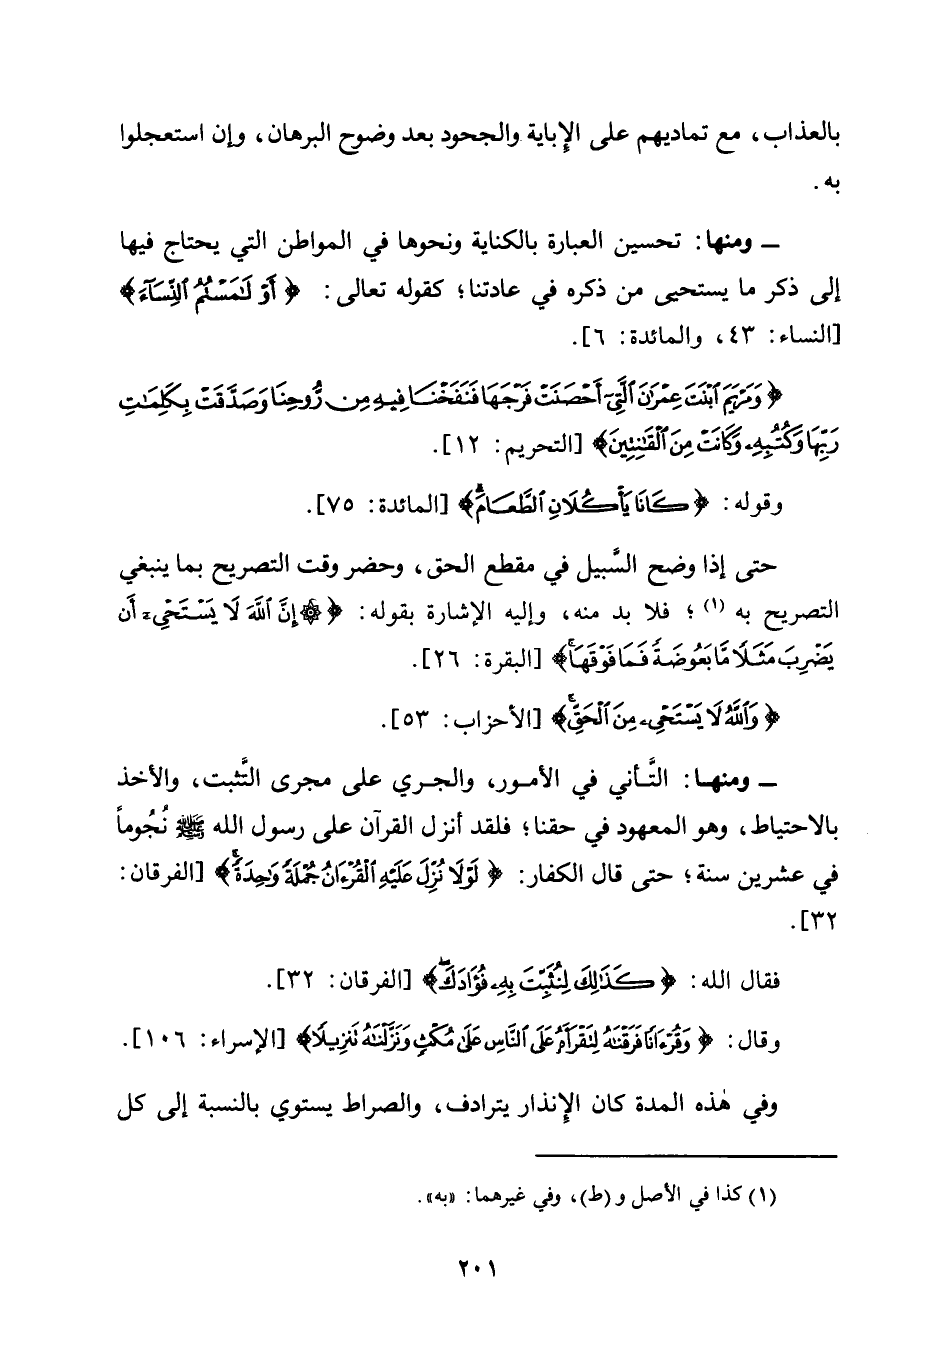 بالعذاب، مع تماديهم على الإباية والجحود بعد وضوح البرهان، وإن استعجلوا
به.
ـ ومنها: تحسين العبارة بالكناية ونحوها في المواطن التي يحتاج فيها
إلى ذكر ما يستحيى من ذكره في عادتنا؛ كقوله تعالى: ﴿أَوْ لَٰمَسْتُمُ ٱلنِّسَآءَ﴾
[النساء: ٤٣، والمائدة: ٦].
﴿وَمَرْيَمَ ٱبْنَتَ عِمْرَٰنَ ٱلَّتِىٓ أَحْصَنَتْ فَرْجَهَا فَنَفَخْنَا فِيهِ مِن رُّوحِنَا وَصَدَّقَتْ بِكَلِمَٰتِ
رَبِّهَا وَكُتُبِهِۦ وَكَانَتْ مِنَ ٱلْقَٰنِتِينَ﴾ [التحريم: ١٢].
وقوله: ﴿كَانَا يَأْكُلَانِ ٱلطَّعَامَ ۗ﴾ [المائدة: ٧٥].
حتى إذا وضح السَّبيل في مقطع الحق، وحضر وقت التصريح بما ينبغي
التصريح به (١)؛ فلا بد منه، وإليه الإشارة بقوله: ﴿۞ إِنَّ ٱللَّهَ لَا يَسْتَحْىِۦٓ أَن
يَضْرِبَ مَثَلًا مَّا بَعُوضَةً فَمَا فَوْقَهَا ۚ﴾ [البقرة: ٢٦].
﴿وَٱللَّهُ لَا يَسْتَحْىِۦ مِنَ ٱلْحَقِّ ۚ﴾ [الأحزاب: ٥٣].
ـ ومنهـا: التَّأني في الأمـور، والجـري على مجرى التَّثبت، والأخذ
بالاحتياط، وهو المعهود في حقنا؛ فلقد أنزل القرآن على رسول الله ﷺ نُجُوماً
في عشرين سنة؛ حتى قال الكفار: ﴿لَوْلَا نُزِّلَ عَلَيْهِ ٱلْقُرْءَانُ جُمْلَةً وَٰحِدَةً ۚ﴾ [الفرقان:
٣٢].
فقال الله: ﴿كَذَٰلِكَ لِنُثَبِّتَ بِهِۦ فُؤَادَكَ ۖ﴾ [الفرقان: ٣٢].
وقال: ﴿وَقُرْءَانًا فَرَقْنَٰهُ لِتَقْرَأَهُۥ عَلَى ٱلنَّاسِ عَلَىٰ مُكْثٍ وَنَزَّلْنَٰهُ تَنزِيلًا﴾ [الإسراء: ١٠٦].
وفي هٰذه المدة كان الإنذار يترادف، والصراط يستوي بالنسبة إلى كل
(١) كذا في الأصل و (ط)، وفي غيرهما: «به».
٢٠١